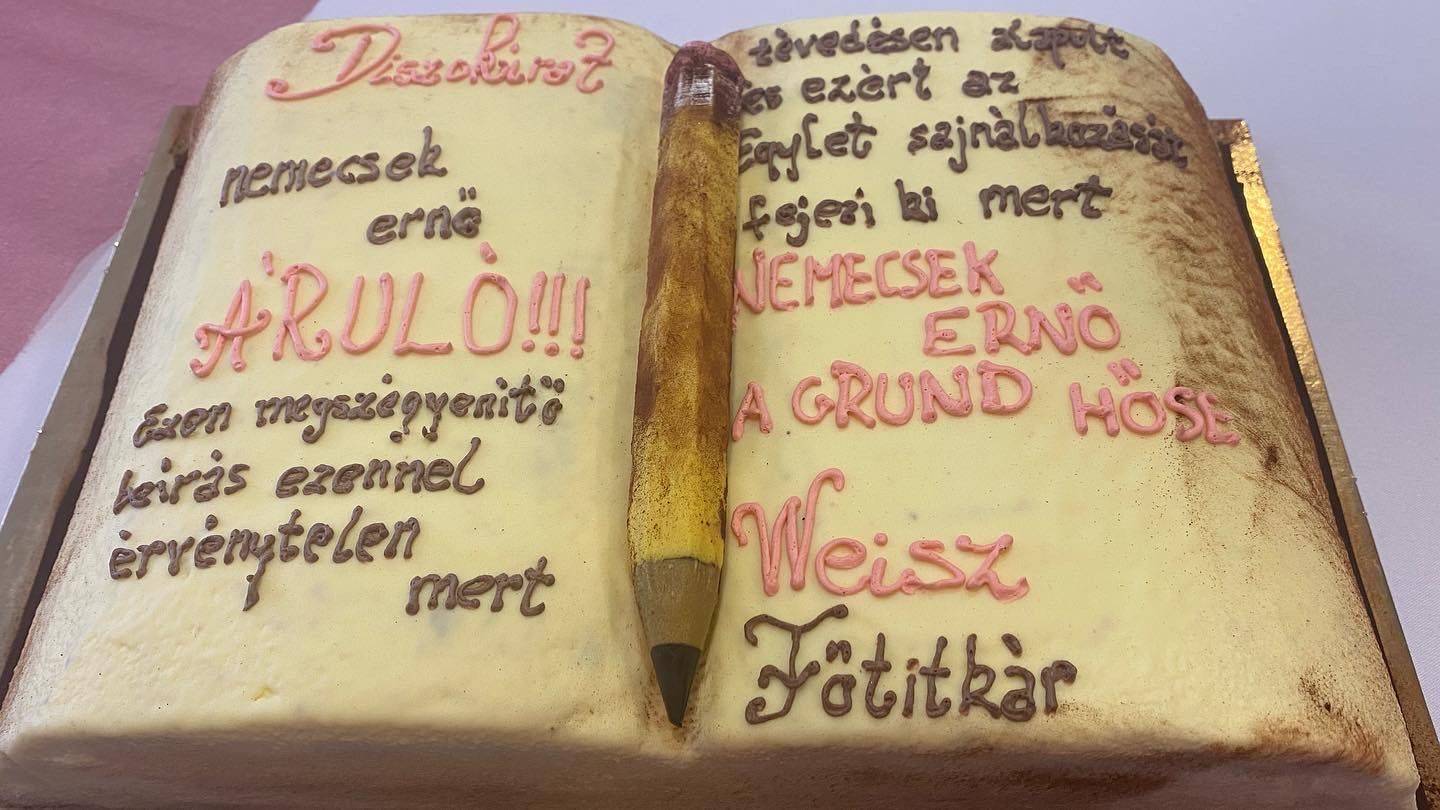 Diszokirat
nemecsek
ernö
ÁRULÒ!!!
Ezen megszégyenitö
leirás ezennel
èrvènytelen
mert
tèvedèsen alapult
és ezèrt az
Egylet sajnàlkozását
fejezi ki mert
NEMECSEK
ERNÖ
A GRUND HÖSE
Weisz
Fötitkàr